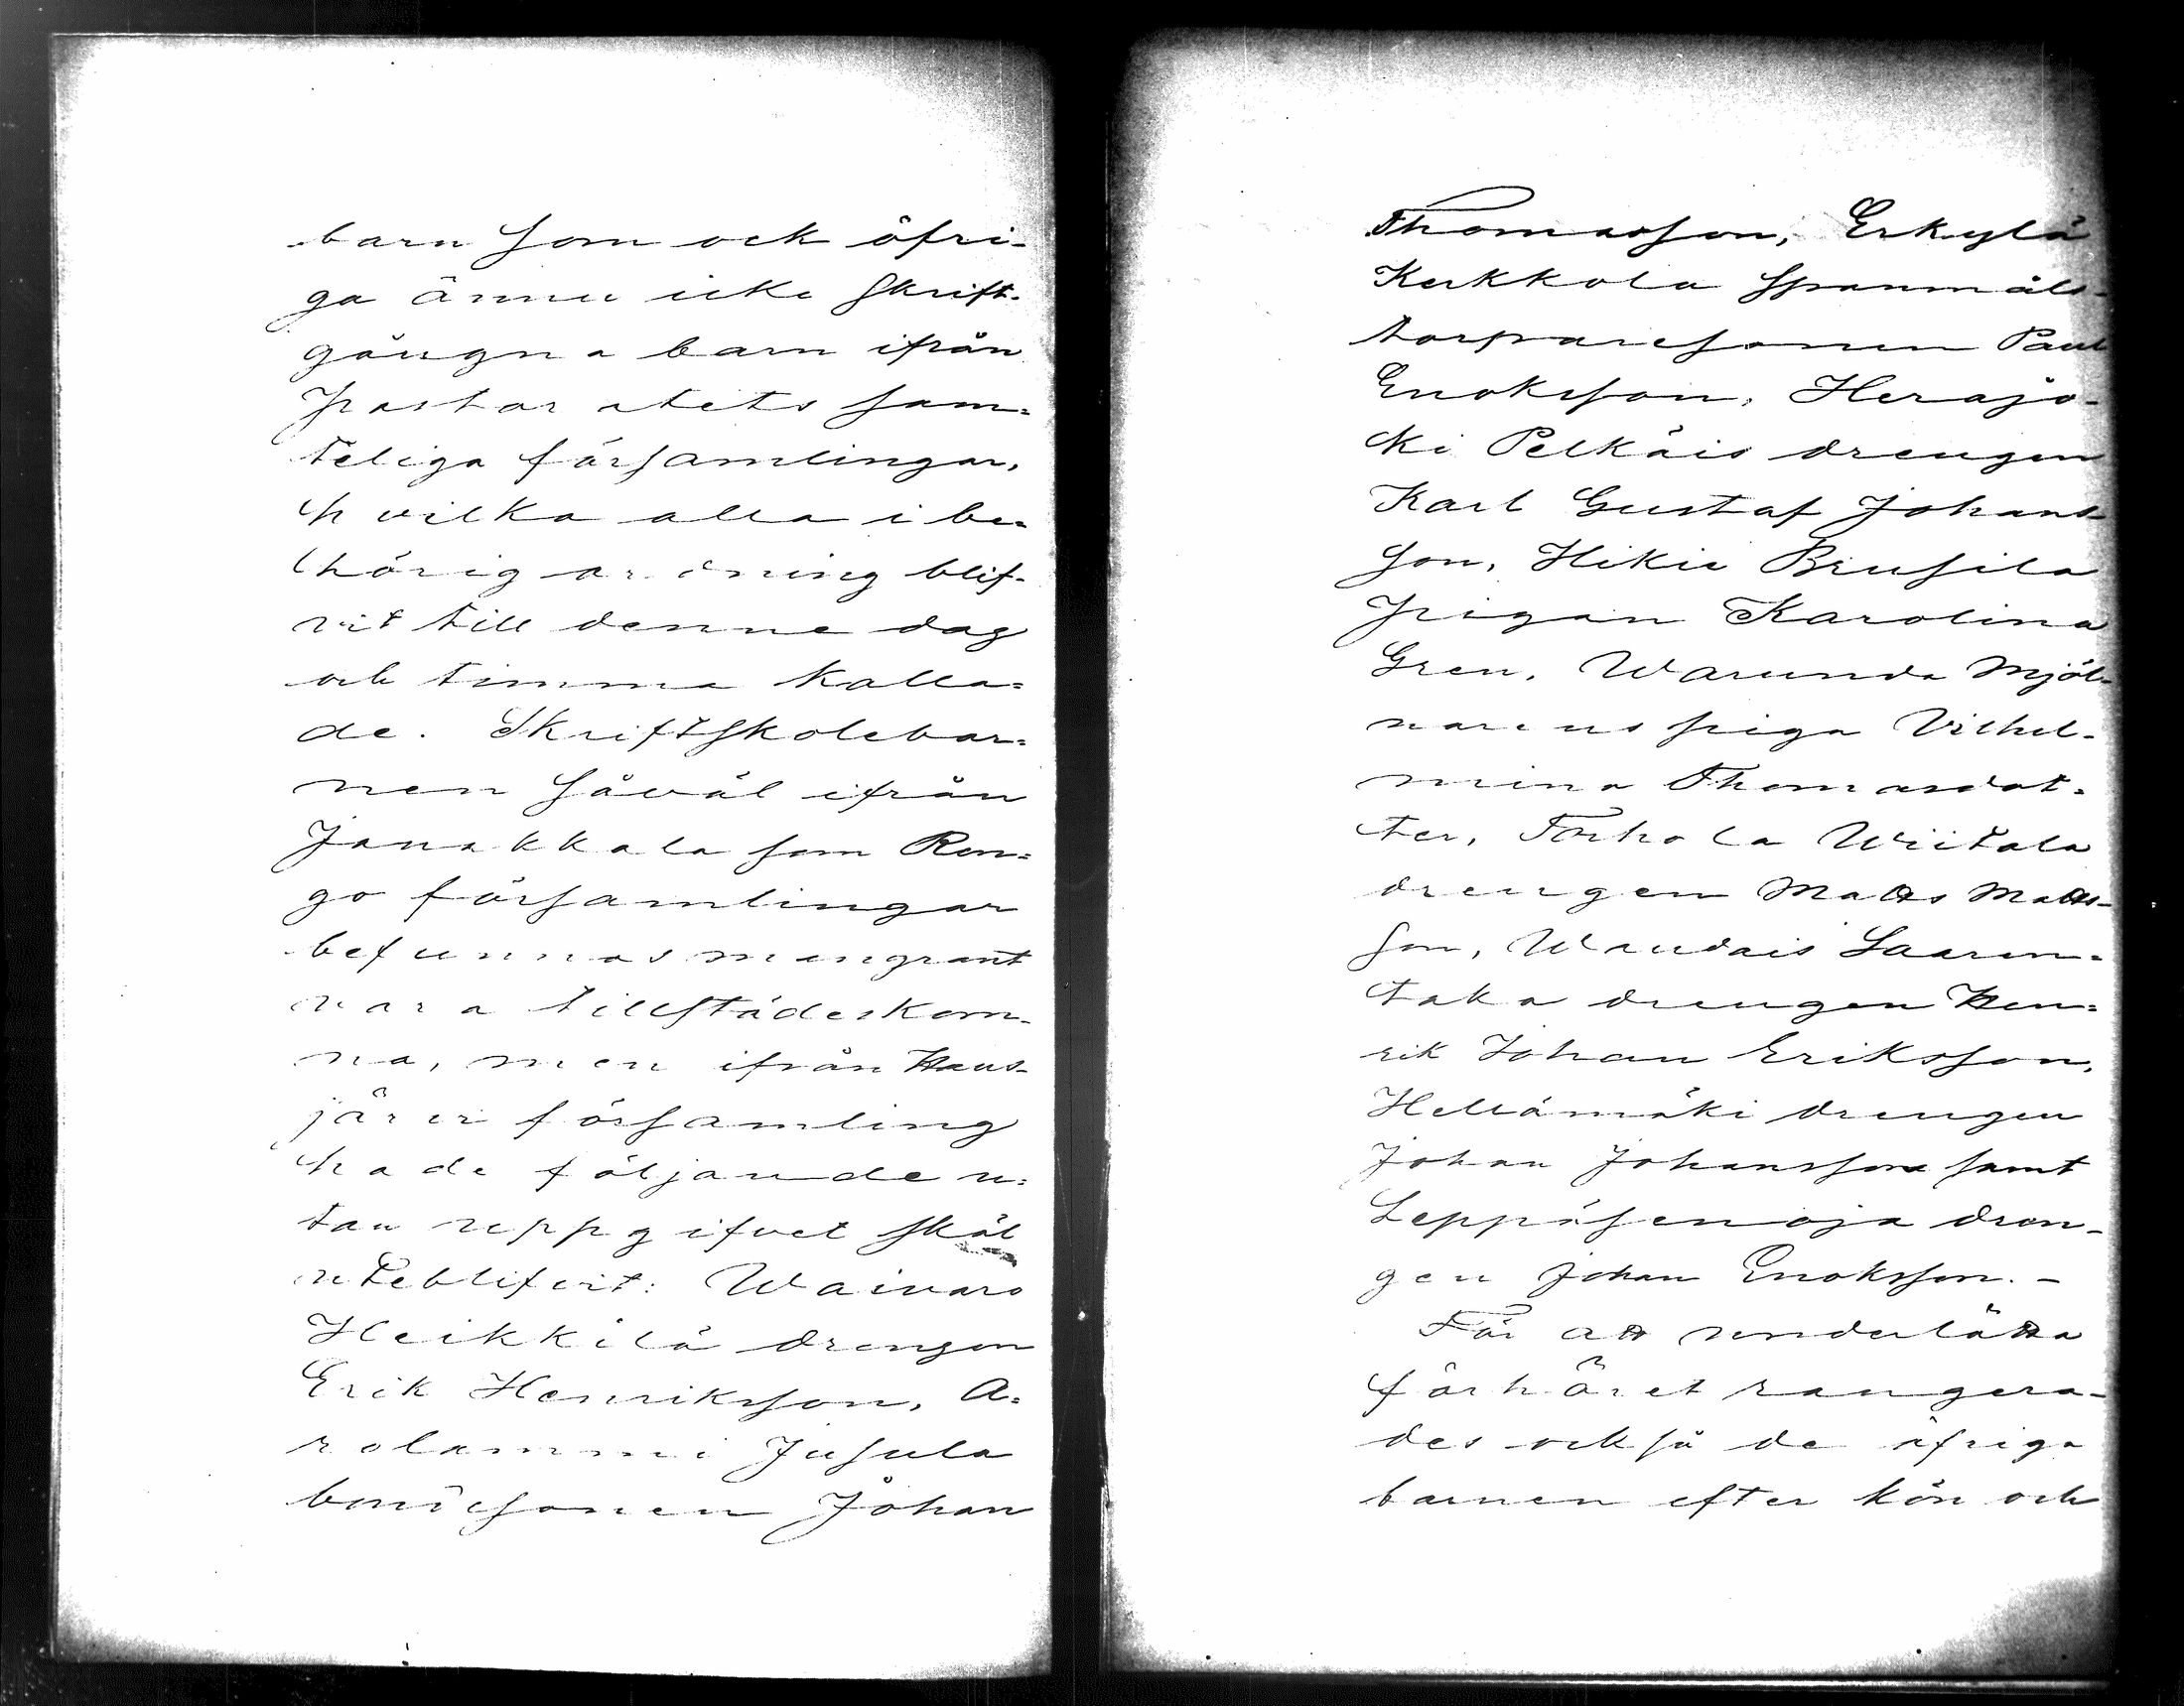 barn som ock öfri-
ga ännu icke skrift-
gångna barn ifrån
pastoratets sam-
teliga församlingar,
hvilka alla i be-
hörig ordning blif-
vit till denne dag
och timma kalla-
de. Skriftskolebar-
nen såväl ifrån
Janakkala som Ren-
go församlingar
befunnos mangrant
vara tillstädeskom-
na, men ifrån Haus-
järvi församling
hade följande u-
tan uppgifvet skäl
uteblifvit: Waivaro
Heikkilä drengen
Erik Henriksson, A-
rolammi Jusula
bondesonen Johan
Thomasson, Erkylä
Kerkkola spanmåls-
torparesonen Paul
Enoksson, Herajo-
ki Pelkäis drengen
Karl Gustaf Johans-
son, Hikie Brusila
pigan Karolina
Gren, Warunda mjöl-
narens piga Vilhel-
mina Thomasdot-
ter, Torhola Wiitala
drengen Matts Matts-
son, Wandais Laaren-
taka drengen Hen-
rik Johan Eriksson,
Hellämäki drengen
Johan Johansson samt
Leppäsenoja dren-
gen Johan Enoksson. -
För att underlätta
förhöret rangera-
des också de öfriga
barnen efter kön och